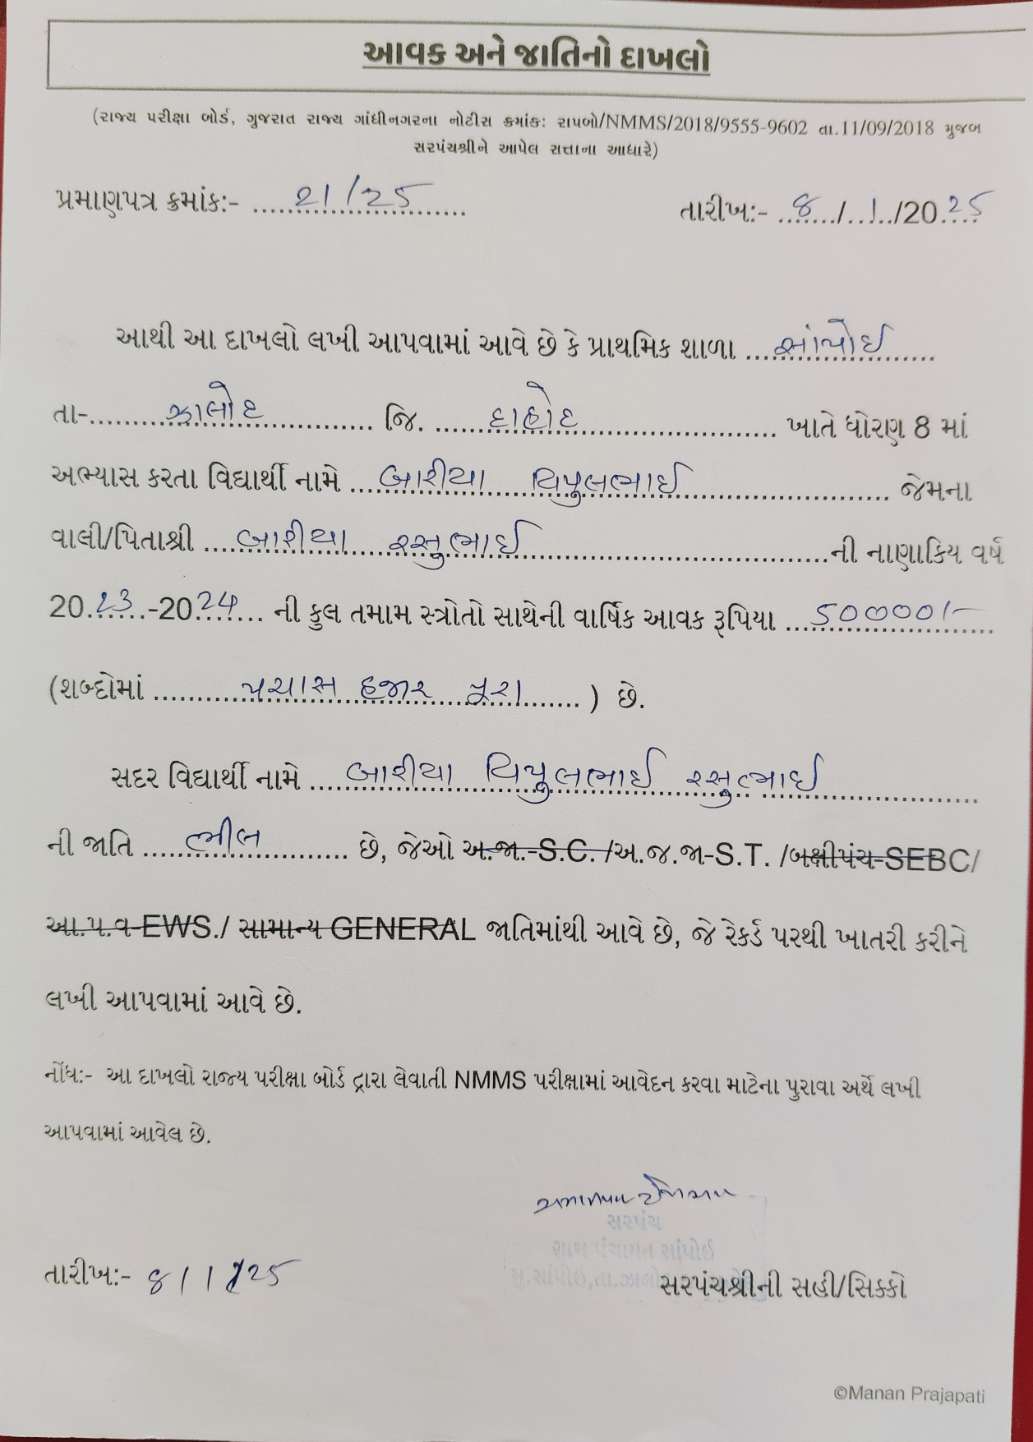 આવક અને જાતિનો દાખલો
(રાજ્ય પરીક્ષા બોર્ડ, ગુજરાત રાજ્ય ગાંધીનગરના નોટીસ ક્રમાંક: રાપબો/NMMS/2018/9555-9602 તા.11/09/2018 મુજબ
સરપંચશ્રીને આપેલ સત્તાના આધારે)
પ્રમાણપત્ર ક્રમાંક:- 21/25 તારીખ:- 8/1/2025
આથી આ દાખલો લખી આપવામાં આવે છે કે પ્રાથમિક શાળા સાંપોઈ
તા- ઝાલોદ જિ. દાહોદ ખાતે ધોરણ 8 માં
અભ્યાસ કરતા વિદ્યાર્થી નામે બારીયા વિપુલભાઈ જેમના
વાલી/પિતાશ્રી બારીયા રસુભાઈ ની નાણાકિય વર્ષ
2023-2024 ની કુલ તમામ સ્ત્રોતો સાથેની વાર્ષિક આવક રૂપિયા 50000/-
(શબ્દોમાં પચાસ હજાર પૂરા ) છે.
સદર વિદ્યાર્થી નામે બારીયા વિપુલભાઈ રસુભાઈ
ની જાતિ ભીલ છે, જેઓ અ.જા.-S.C. /અ.જ.જા-S.T. /બક્ષીપંચ-SEBC/
આ.પ.વ-EWS./ સામાન્ય GENERAL જાતિમાંથી આવે છે, જે રેકર્ડ પરથી ખાતરી કરીને
લખી આપવામાં આવે છે.
નોંધ:- આ દાખલો રાજ્ય પરીક્ષા બોર્ડ દ્વારા લેવાતી NMMS પરીક્ષામાં આવેદન કરવા માટેના પુરાવા અર્થે લખી
આપવામાં આવેલ છે.
સરપંચ
ગ્રામ પંચાયત સાંપોઈ
મુ.સાંપોઈ,તા.ઝાલોદ
તારીખ:- 8/1/25 સરપંચશ્રીની સહી/સિક્કો
©Manan Prajapati